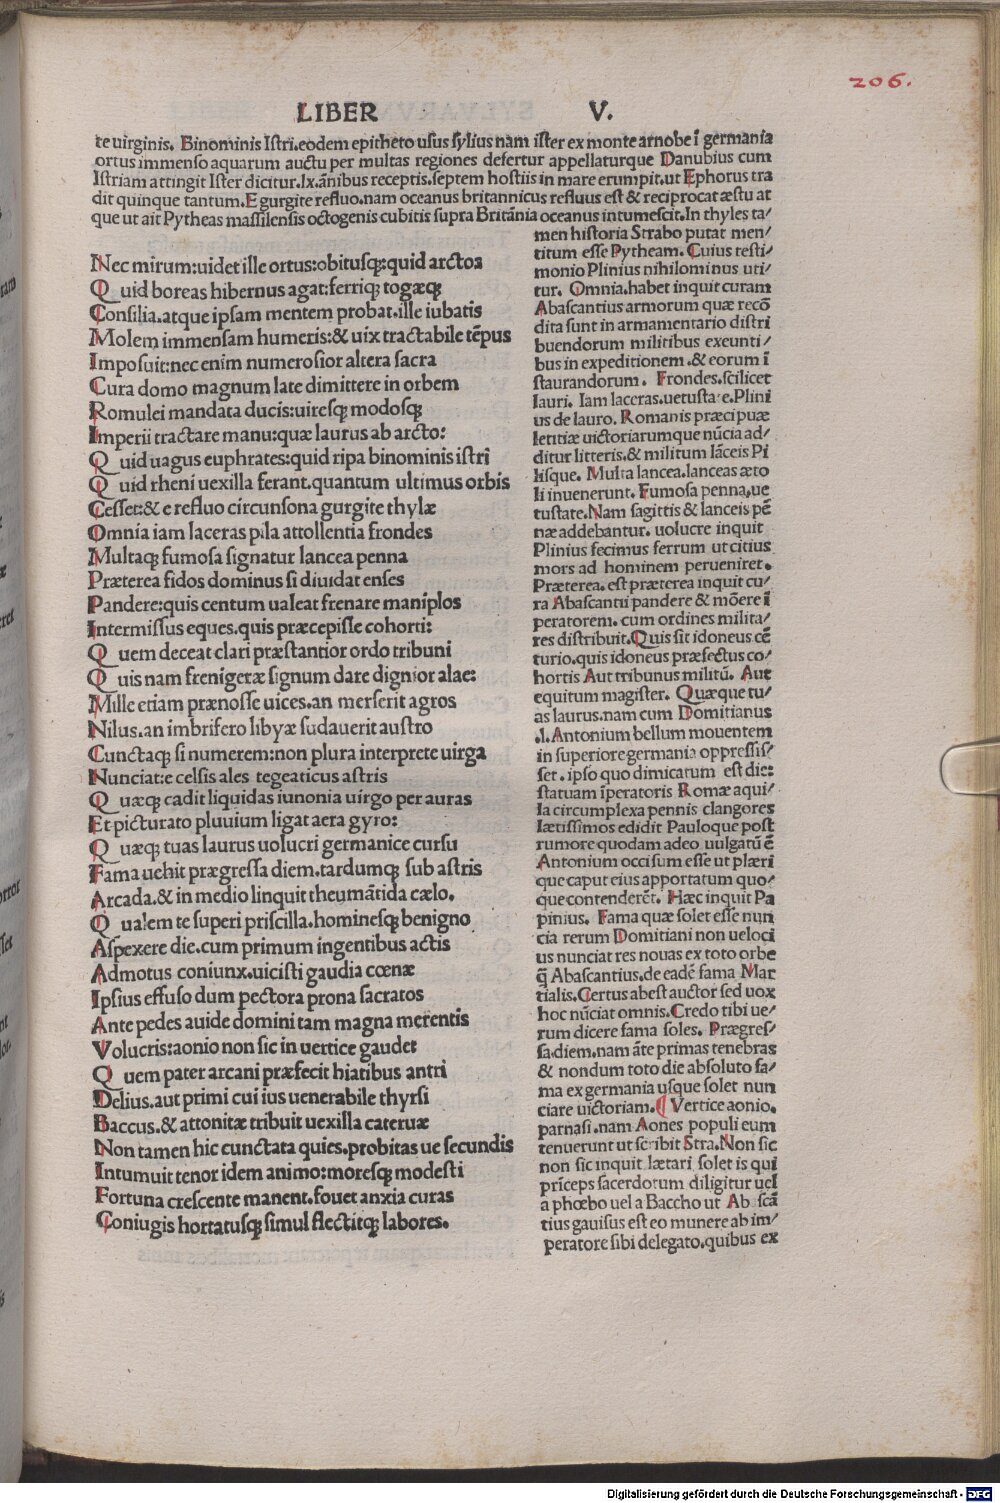 206.
LIBER V.
te uirginis. Binominis Istri.eodem epitheto usus sylius nam ister ex monte arnobe ī germania
ortus immenso aquarum auctu per multas regiones defertur appellaturque Danubius cum
Istriam attingit Ister dicitur.lx.ānibus receptis.septem hostiis in mare erumpit.ut Ephorus tra
dit quinque tantum. E gurgite refluo.nam oceanus britannicus refluus est & reciprocat æstu at
que ut ait Pytheas massilensis octogenis cubitis supra Britānia oceanus intumescit.In thyles ta/
Nec mirum:uidet ille ortus:obitusqꝫ:quid arctoa
Quid boreas hibernus agat:ferriqꝫ togæqꝫ
Consilia.atque ipsam mentem probat.ille iubatis
Molem immensam humeris:& uix tractabile tēpus
Imposuit:nec enim numerosior altera sacra
Cura domo magnum late dimittere in orbem
Romulei mandata ducis:uiresqꝫ modosqꝫ
Imperii tractare manu:quæ laurus ab arcto:
Quid uagus euphrates:quid ripa binominis istri
Quid rheni uexilla ferant.quantum ultimus orbis
Cesset:& e refluo circunsona gurgite thylæ
Omnia iam laceras pila attollentia frondes
Multaqꝫ fumosa signatur lancea penna
Præterea fidos dominus si diuidat enses
Pandere:quis centum ualeat frenare maniplos
Intermissus eques.quis præcepisse cohorti:
Quem deceat clari præstantior ordo tribuni
Quis nam frenigeræ signum dare dignior alae:
Mille etiam prænosse uices.an merserit agros
Nilus.an imbrifero libyæ sudauerit austro
Cunctaqꝫ si numerem:non plura interprete uirga
Nunciat:e celsis ales tegeaticus astris
Quæqꝫ cadit liquidas iunonia uirgo per auras
Et picturato pluuium ligat aera gyro:
Quæqꝫ tuas laurus uolucri germanice cursu
Fama uehit prægressa diem.tardumqꝫ sub astris
Arcada.& in medio linquit theumātida cælo.
Qualem te superi priscilla.hominesqꝫ benigno
Aspexere die.cum primum ingentibus actis
Admotus coniunx.uicisti gaudia cœnæ
Ipsius effuso dum pectora prona sacratos
Ante pedes auide domini tam magna merentis
Volucris:aonio non sic in uertice gaudet
Quem pater arcani præfecit hiatibus antri
Delius.aut primi cui ius uenerabile thyrsi
Baccus.& attonitæ tribuit uexilla cateruæ
Non tamen hic cunctata quies.probitas ue secundis
Intumuit tenor idem animo:moresqꝫ modesti
Fortuna crescente manent.fouet anxia curas
Coniugis hortatusqꝫ simul flectitqꝫ labores.
men historia Strabo putat men/
titum esse Pytheam. Cuius testi/
monio Plinius nihilominus uti/
tur. Omnia.habet inquit curam
Abascantius armorum quæ recō
dita sunt in armamentario distri
buendorum militibus exeunti/
bus in expeditionem.& eorum ī
staurandorum. Frondes.scilicet
lauri. Iam laceras.uetustate.Plini
us de lauro. Romanis præcipuæ
letitiæ uictoriarumque nūcia ad/
ditur litteris.& militum lāceis Pi
lisque. Multa lancea.lanceas æto
li inuenerunt. Fumosa penna,ue
tustate.Nam sagittis & lanceis pē
næ addebantur. uolucre inquit
Plinius fecimus ferrum ut citius
mors ad hominem perueniret.
Præterea.est præterea inquit cu/
ra Abascantii pandere & mōere ī
peratorem.cum ordines milita/
res distribuit.Quis sit idoneus cē
turio.quis idoneus præfectus co/
hortis Aut tribunus militū. Aut
equitum magister. Quæque tu/
as laurus.nam cum Domitianus
.l.Antonium bellum mouentem
in superiore germania oppressis/
set.ipso quo dimicatum est die:
statuam īperatoris Romæ aqui/
la circumplexa pennis clangores
lætissimos edidit Pauloque post
rumore quodam adeo uulgatū ē
Antonium occisum esse ut plæri
que caput eius apportatum quo/
que contenderēt. Hæc inquit Pa
pinius. Fama quæ solet esse nun
cia rerum Domitiani non ueloci
us nunciat res nouas ex toto orbe
q̄ Abascantius.de eadē fama Mar
tialis.Certus abest auctor sed uox
hoc nūciat omnis.Credo tibi ue/
rum dicere fama soles. Prægres/
sa diem.nam āte primas tenebras
& nondum toto die absoluto fa/
ma ex germania usque solet nun
ciare uictoriam.¶ Vertice aonio.
parnasi.nam Aones populi eum
tenuerunt ut scribit Stra.Non sic
non sic inquit lætari solet is qui
prīceps sacerdotum diligitur uel
a phœbo uel a Baccho ut Abascā
tius gauisus est eo munere ab im/
peratore sibi delegato.quibus ex
Digitalisierung gefördert durch die Deutsche Forschungsgemeinschaft - DFG